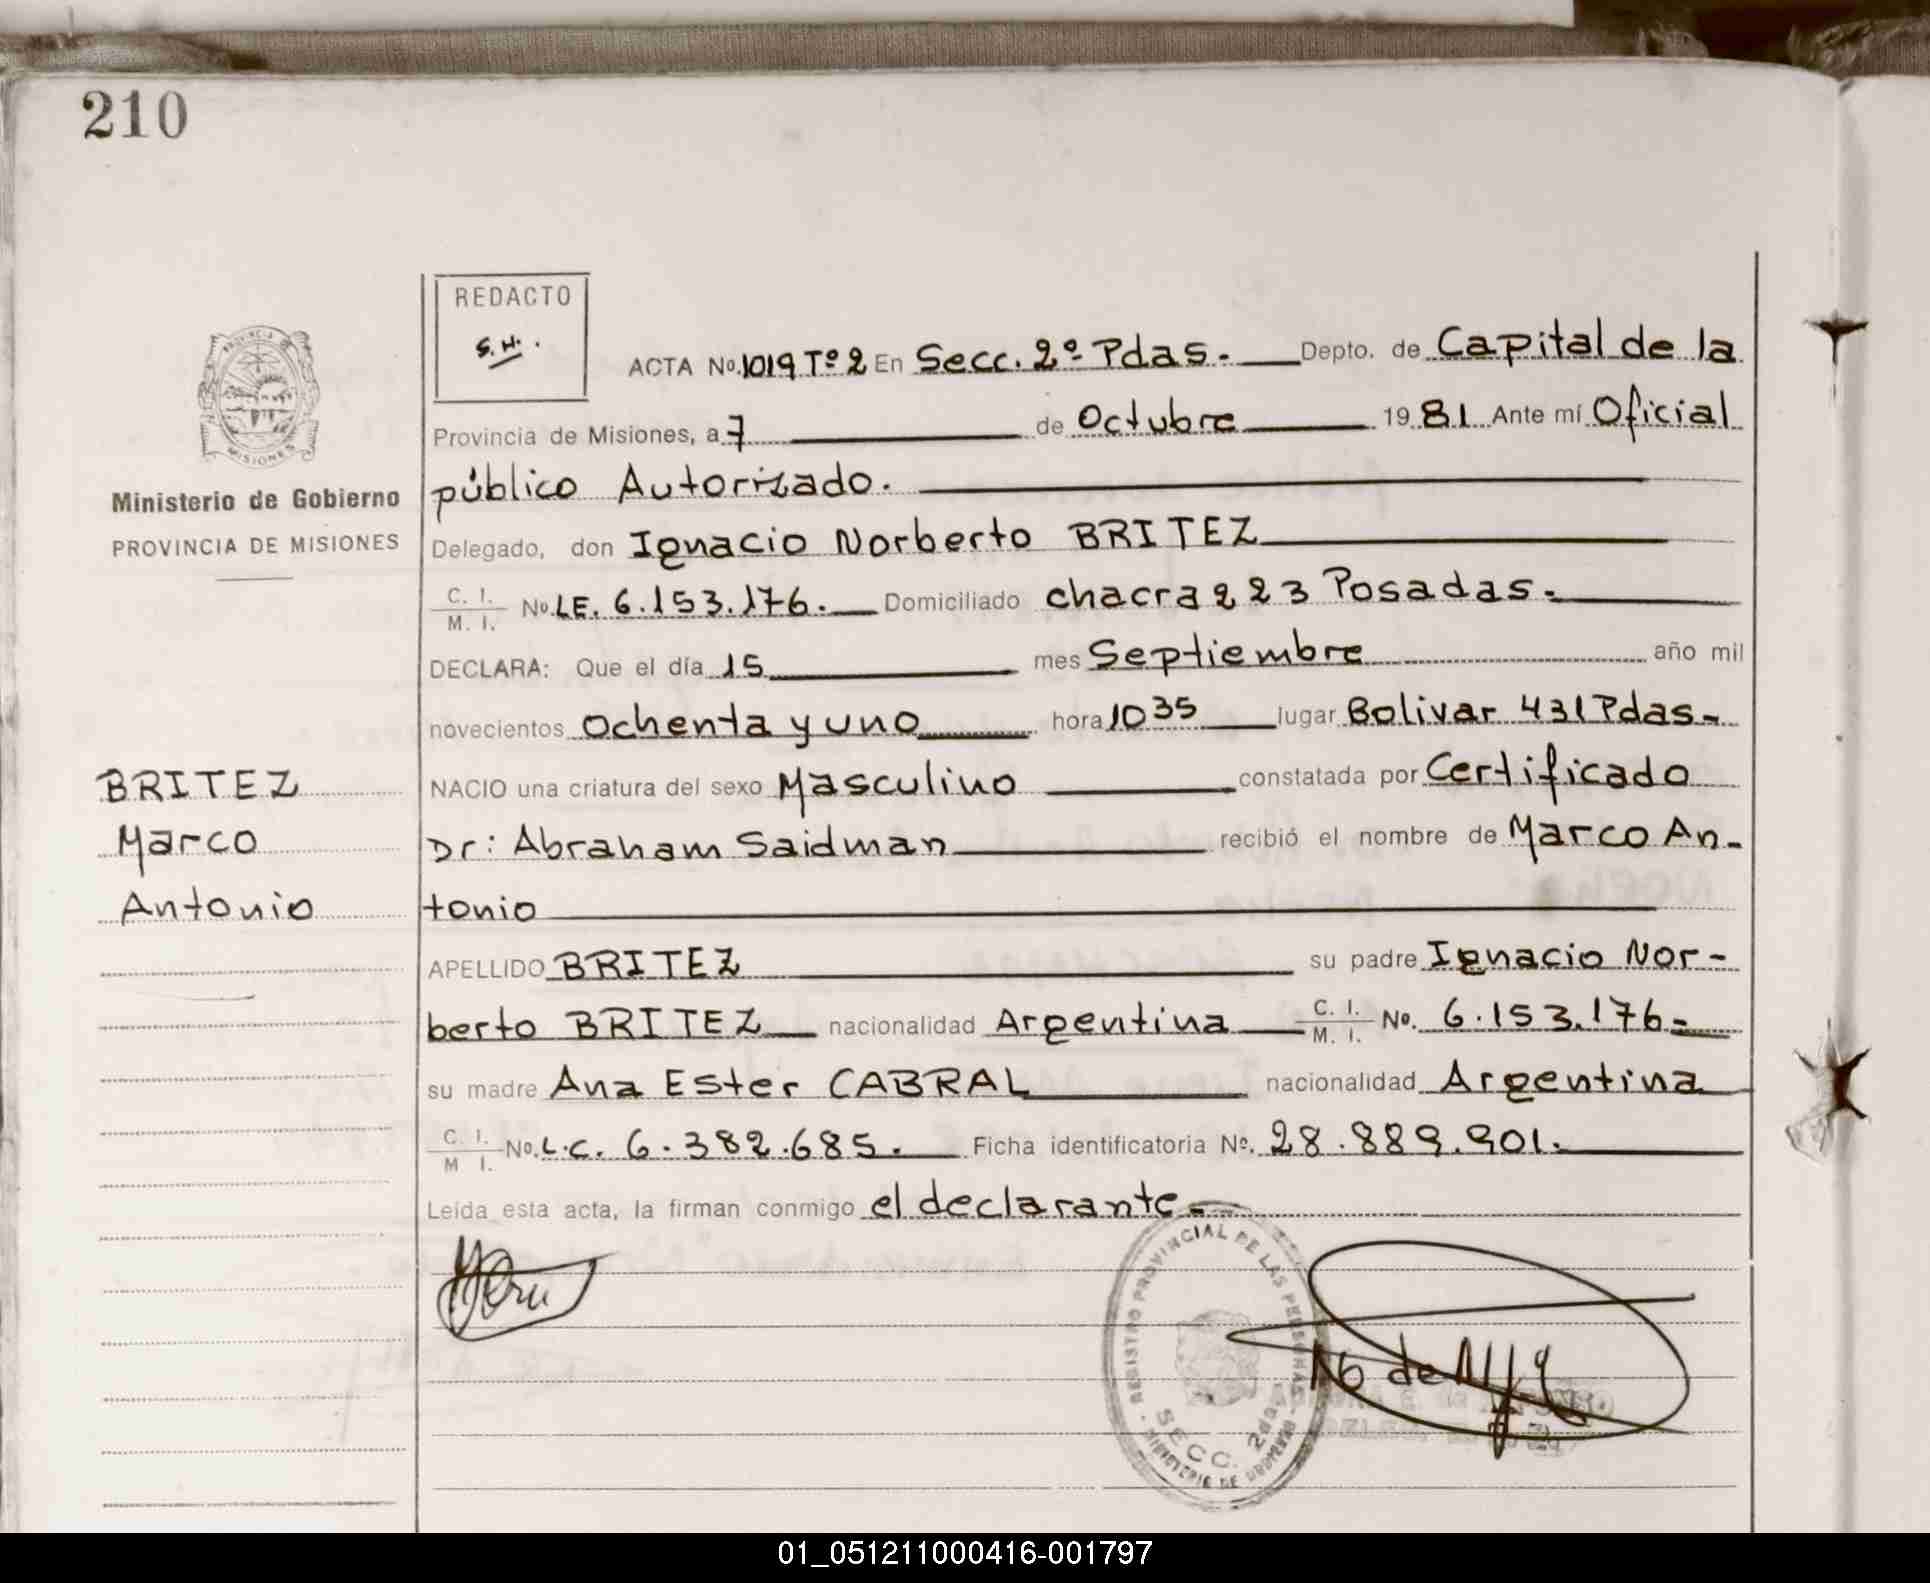 210
REDACTO
S.H.
ACTA No. 1019 Tº 2 En Secc. 2º Pdas.- Depto. de Capital de la
Provincia de Misiones, a 7 de Octubre 19 81 Ante mí Oficial
público Autorizado.
Delegado, don Ignacio Norberto BRITEZ
C. I. / M. I. No. LE. 6.153.176. Domiciliado chacra 223 Posadas.-
DECLARA: Que el día 15 mes Septiembre año mil
novecientos ochenta y uno hora 10 35 lugar Bolivar 431 Pdas-
NACIO una criatura del sexo Masculino constatada por Certificado
Dr: Abraham Saidman recibió el nombre de Marco An-
tonio
APELLIDO BRITEZ su padre Ignacio Nor-
berto BRITEZ nacionalidad Argentina C. I. / M. I. No. 6.153.176-
su madre Ana Ester CABRAL nacionalidad Argentina
C. I. / M I. No. L.C. 6.382.685. Ficha identificatoria Nº. 28.889.901.
Leída esta acta, la firman conmigo el declarante.-
PROVINCIA DE MISIONES
Ministerio de Gobierno
PROVINCIA DE MISIONES
BRITEZ
Marco
Antonio
REGISTRO PROVINCIAL DE LAS PERSONAS
SECC. 2das.
MINISTERIO DE GOBIERNO
01_051211000416-001797